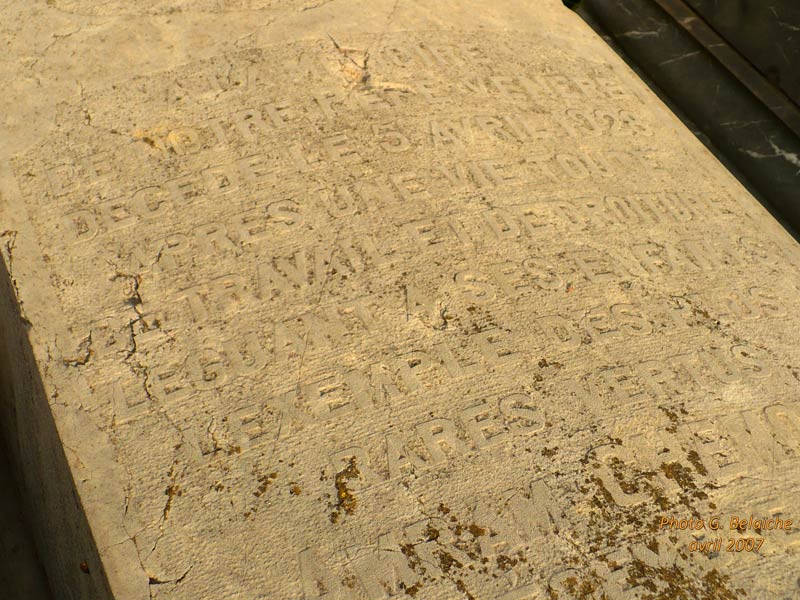 A LA MEMOIRE
DE NOTRE PERE VENERE
DECEDE LE 5 AVRIL 1928
APRES UNE VIE TOUTE DE
TRAVAIL ET DE DROITURE
LEGUANT A SES ENFANTS
L'EXEMPLE DES PLUS
RARES VERTUS
Photo G. Belaiche
avril 2007